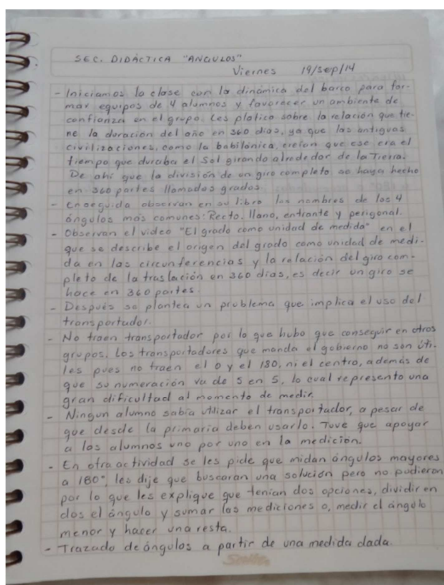 SEC. DIDÁCTICA "ANGULOS"
Viernes 19/sep/14
- Iniciamos la clase con la dinámica del barco para for-
mar equipos de 4 alumnos y favorecer un ambiente de
confianza en el grupo. Les platico sobre la relación que tie-
ne la duración del año en 360 días, ya que las antiguas
civilizaciones, como la babilónica, creían que ese era el
tiempo que duraba el Sol girando alrededor de la Tierra.
De ahí que la división de un giro completo se haya hecho
en 360 partes llamados grados.
- Enseguida observan en su libro los nombres de los 4
ángulos más comunes: Recto, llano, entrante y perigonal.
- Observan el video "El grado como unidad de medida" en el
que se describe el origen del grado como unidad de medi-
da en las circunferencias y la relación del giro com-
pleto de la traslación en 360 días, es decir un giro se
hace en 360 partes.
- Después se plantea un problema que implica el uso del
transportador.
- No traen transportador por lo que hubo que conseguir en otros
grupos. Los transportadores que manda el gobierno no son úti-
les pues no traen el 0 y el 180, ni el centro, además de
que su numeración va de 5 en 5, lo cual representó una
gran dificultad al momento de medir.
- Ningun alumno sabía utilizar el transportador, a pesar de
que desde la primaria deben usarlo. Tuve que apoyar
a los alumnos uno por uno en la medición.
- En otra actividad se les pide que midan ángulos mayores
a 180°, les dije que buscaran una solución pero no pudieron
por lo que les expliqué que tenían dos opciones, dividir en
dos el ángulo y sumar las mediciones o, medir el ángulo
menor y hacer una resta.
- Trazado de ángulos a partir de una medida dada.